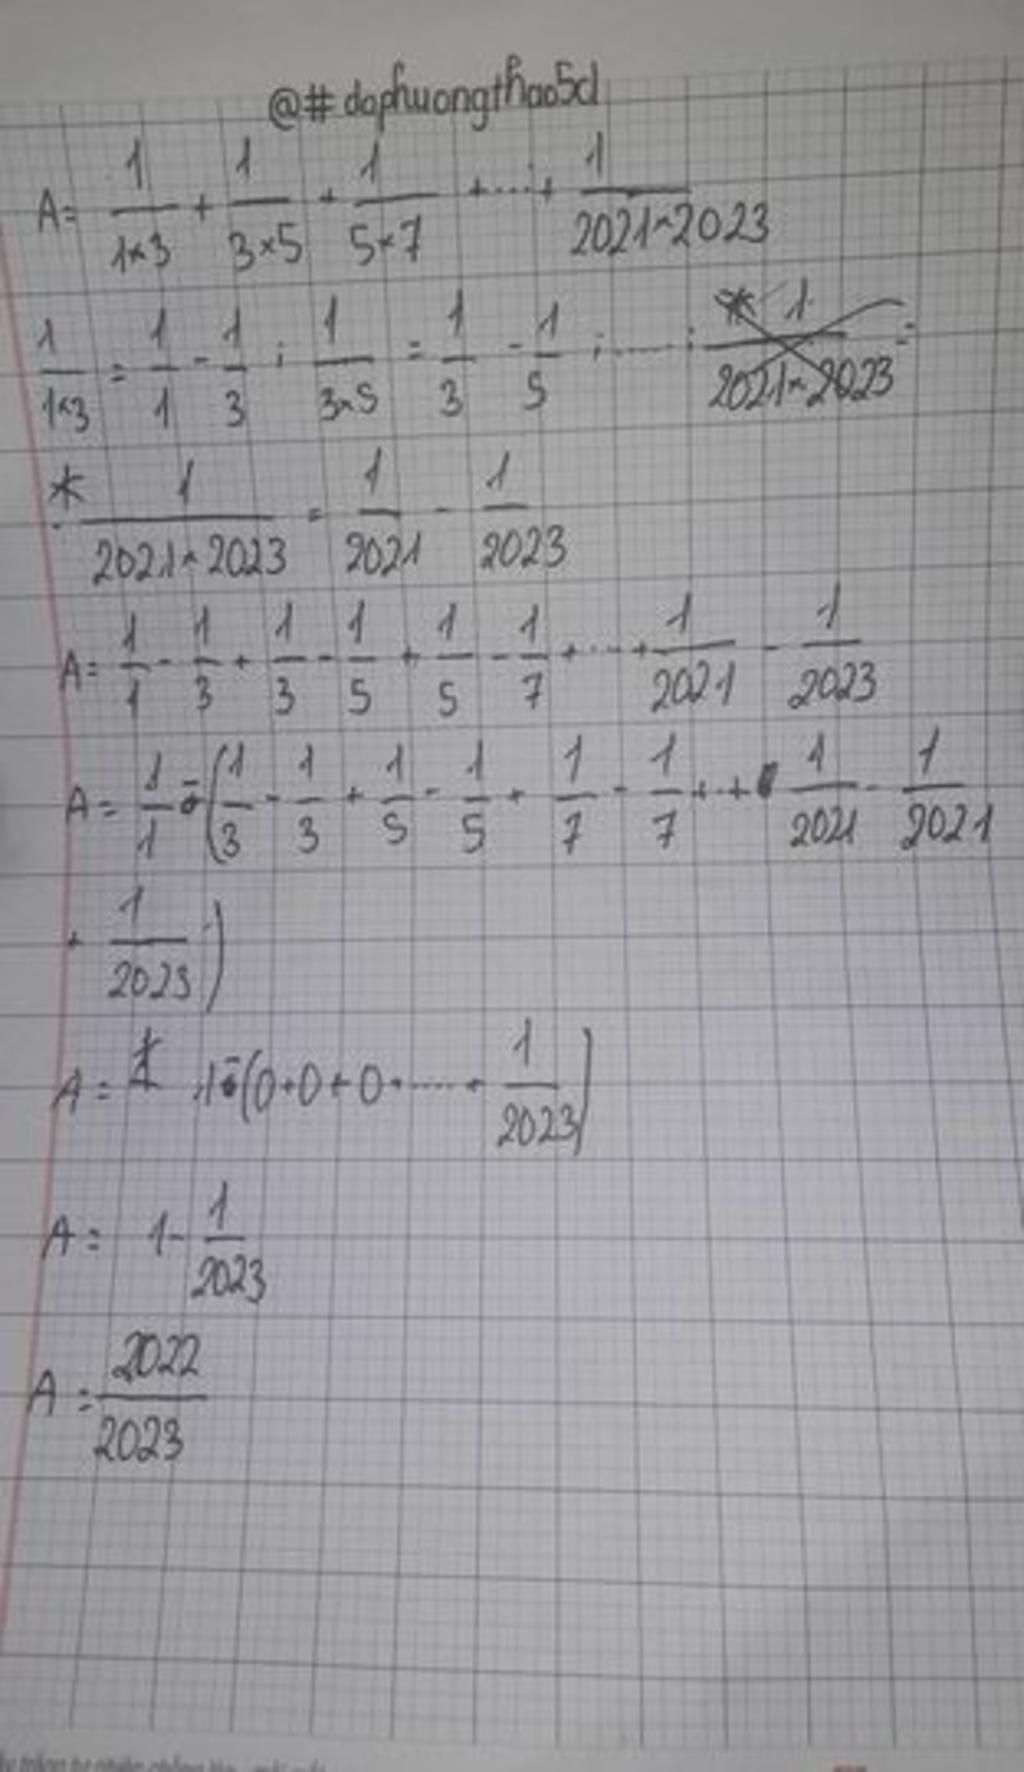 @# dophuongthao5d
A = 1/1×3 + 1/3×5 + 1/5×7 + .... + 1/2021×2023
1/1×3 = 1/1 - 1/3 ; 1/3×5 = 1/3 - 1/5 ; ..... ;
* 1/2021×2023 = 1/2021 - 1/2023
A = 1/1 - 1/3 + 1/3 - 1/5 + 1/5 - 1/7 + .... + 1/2021 - 1/2023
A = 1/1 - (1/3 - 1/3 + 1/5 - 1/5 + 1/7 - 1/7 + .. + 1/2021 - 1/2021
+ 1/2023)
A = 1 - (0 + 0 + 0 + ..... + 1/2023)
A = 1 - 1/2023
A = 2022/2023